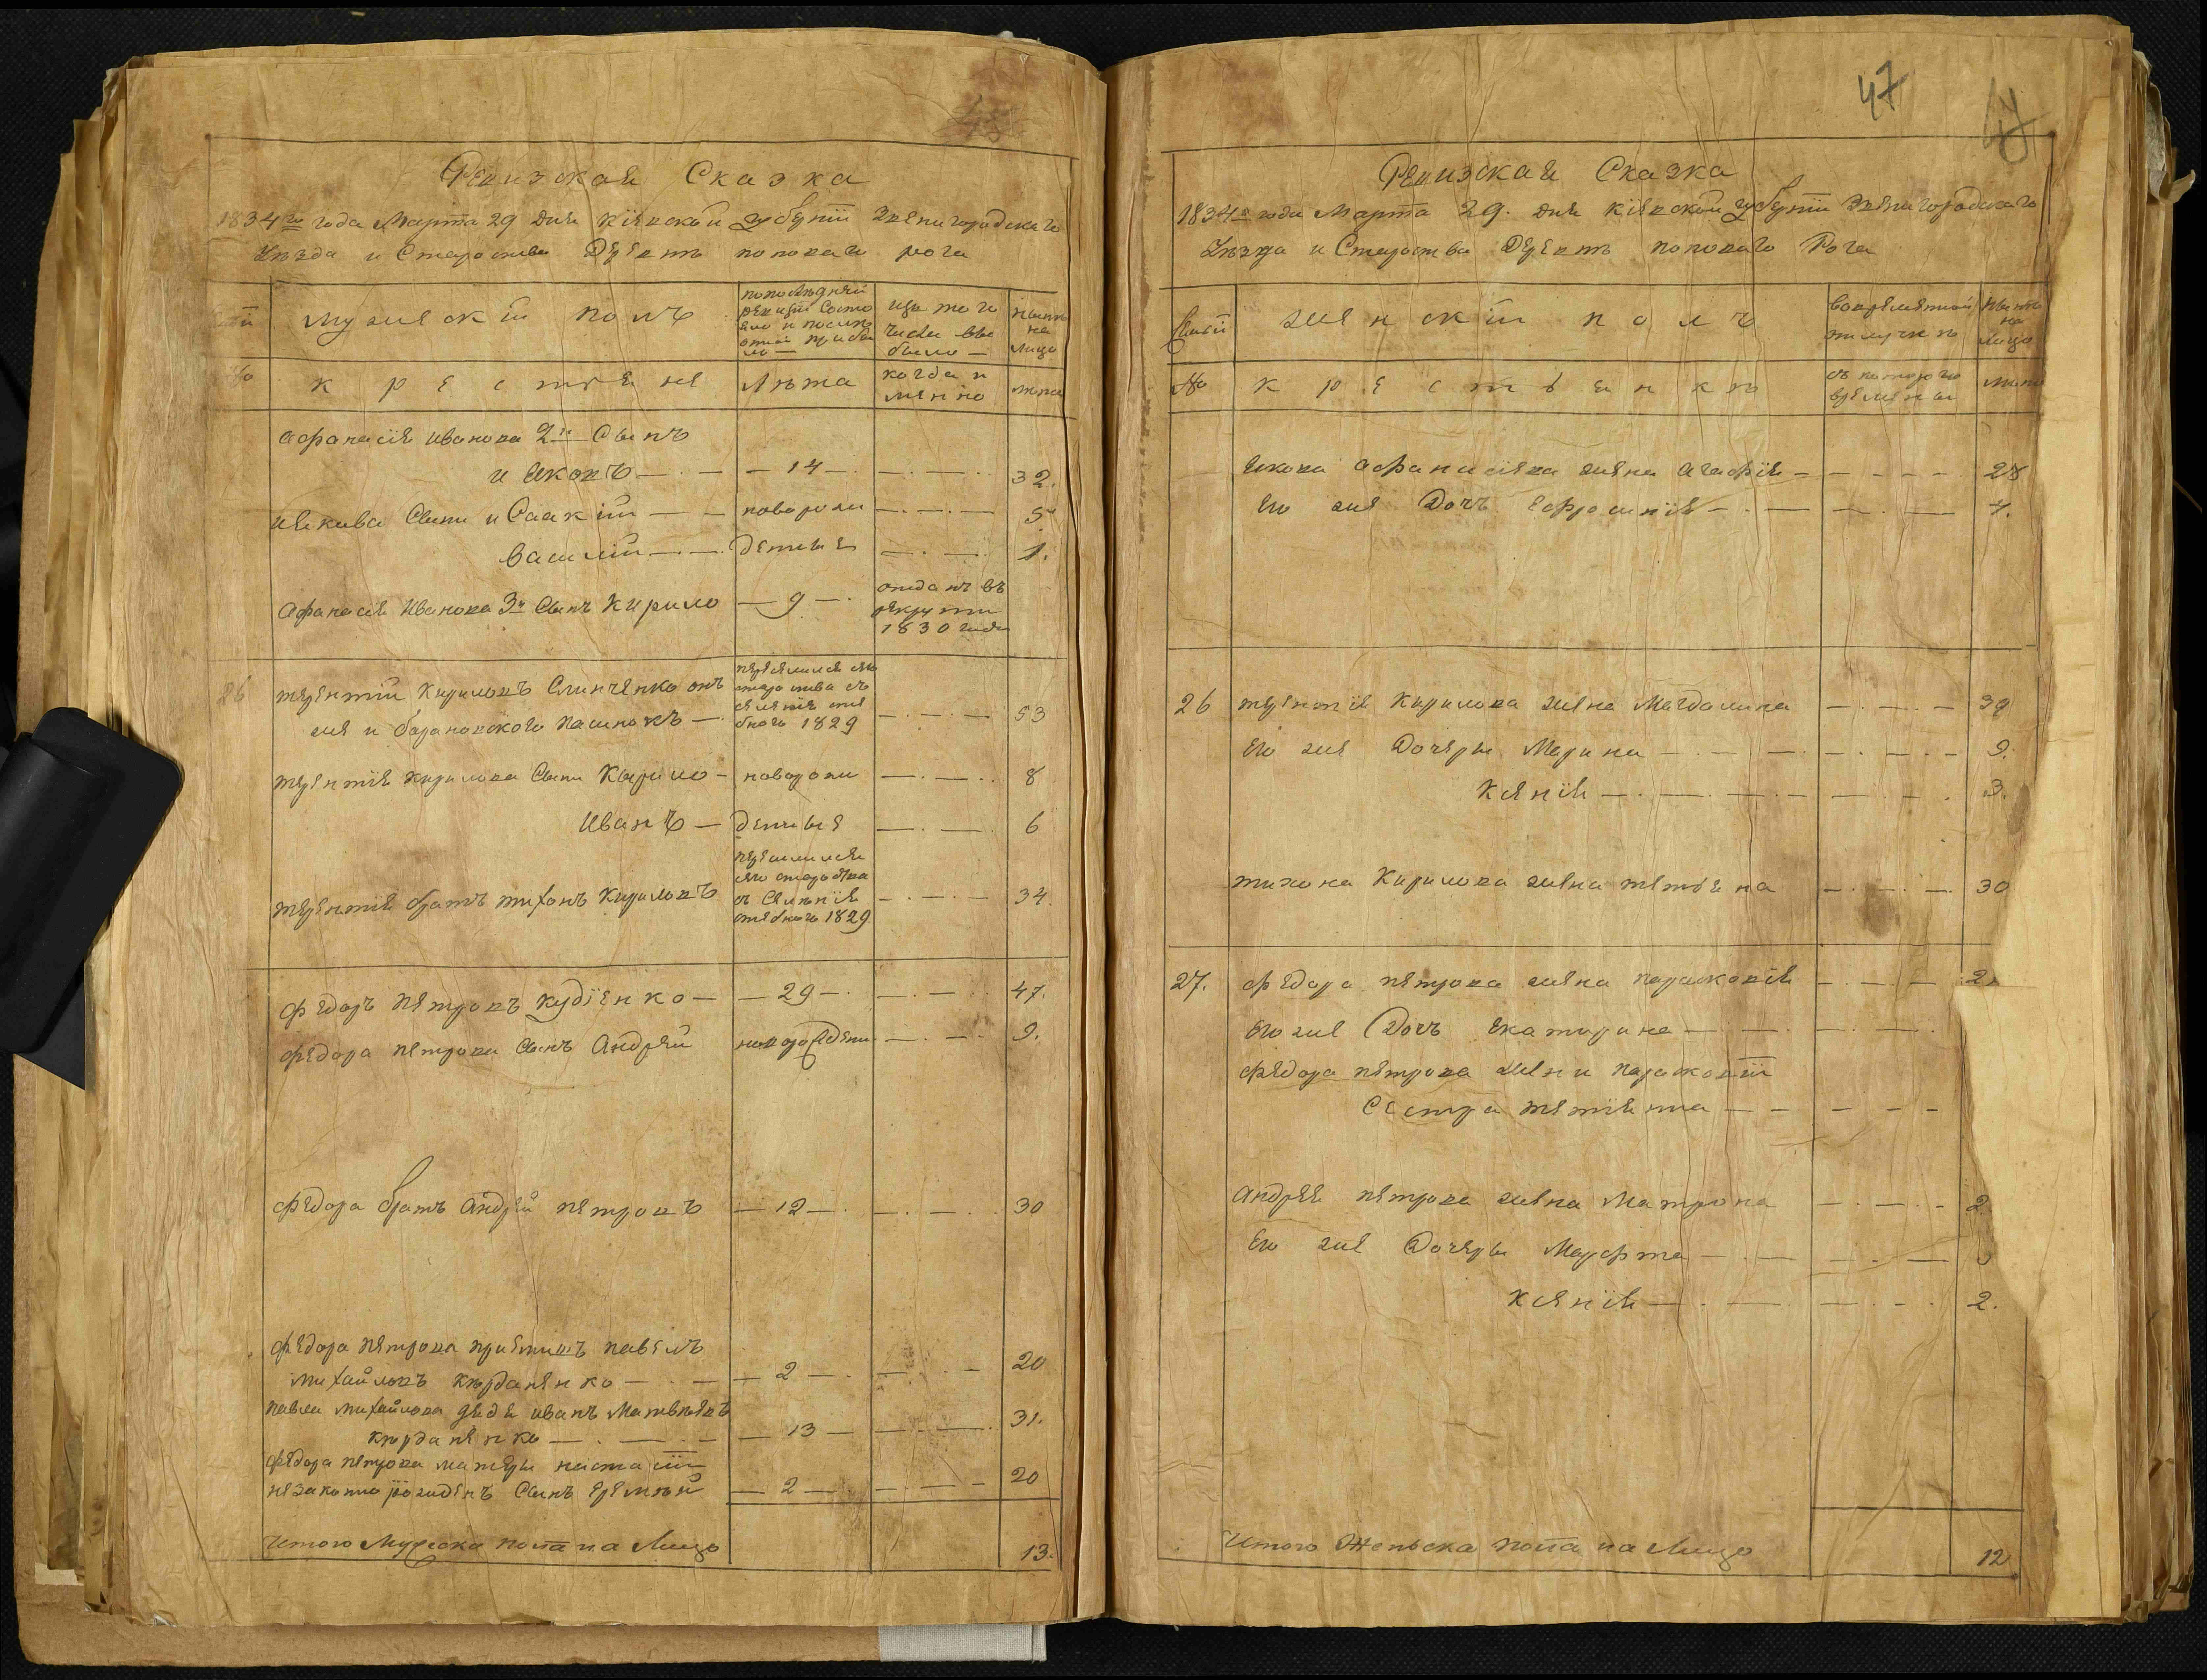 Ревизская Сказка
1834го года Марта 29 дня Кіевской губерніи Звенигородскаго
Уѣзда и Староства Деревнѣ поповаго рога
мужескій полъ
по послѣдней ревизіи состояло и послѣ оной прибыло
изъ того числа выбыло
нынѣ на лицо
№
крестьяне
Лѣта
когда именно
лѣта
Афанасія Иванова 2й Сынъ
и Яковъ — 14 — 32.
Якова Сыны Исаакій — новорож — 5
Василій — денные — 1.
Афанасія Иванова 3й Сынъ Кирило — 9 — отданъ въ рекруты 1830 года
26 терентій Кириловъ
жа и барановского пасинокъ — 1829 — 53
терентія Кирилова Сыны Кырило — новорож — 8
Иванъ — денные — 6
терентія братъ тихонъ Кириловъ — 1829 — 34
федоръ петровъ кудіенко — 29 — 47.
федора петрова Сынъ Андрей новорожденн — 9.
федора братъ Андрей петровъ — 12 — 30
федора петрова приемышъ павелъ
михайловъ — 2 — 20
павла михайлова дядя иванъ Матвѣевъ
— 13 — 31.
федора петрова матери настасіи
незаконно рожденъ Сынъ Еремѣй — 2 — 20
Итого Мужеска пола на Лицо 13.
47
Ревизская Сказка
1834го года Марта 29. дня Кіевской губерніи Звенигородскаго
Уѣзда и Староства Деревнѣ поповаго Рога
Семьи
женскій полъ
во временной отлучкѣ
Нынѣ на лицо
№
крестьянки
съ котораго времены
лѣта
Якова Афанасіева жена Агафія — 28
Его же Дочъ Ефросинія — 7.
26 терентія Кирилова жена Магдалина — 39
Его же Дочеры Марина — 9.
Ксенія — 3.
тихона Кирилова жена тетьяна — 30
27. федора петрова жена парасковія — 2
Его же Дочъ Екатирина —
федора петрова жены парасковіи
Сестра тетіянна —
Андрея петрова жена Матрона — 2
Его же Дочеры Марфта —
Ксенія — 2.
Итого Женьска пола на Лицо 12